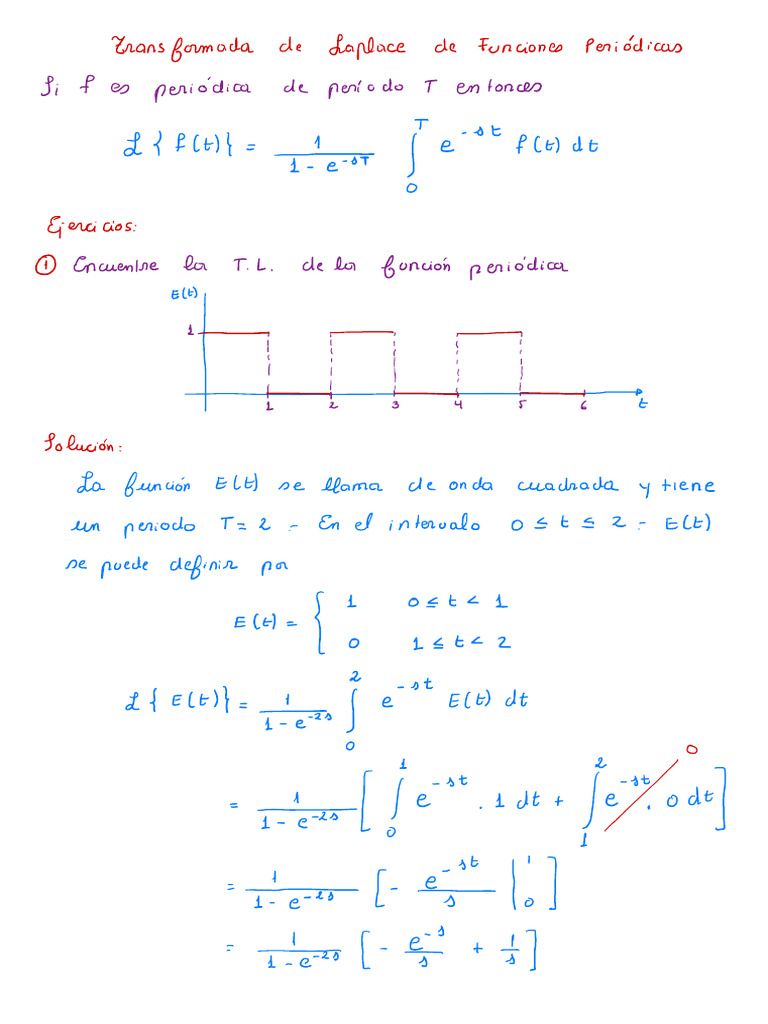 Transformada de Laplace de Funciones Periódicas
Si f es periódica de período T entonces
ℒ{f(t)} = 1/(1 - e^{-sT}) ∫_0^T e^{-st} f(t) dt
Ejercicios:
① Encuentre la T.L. de la función periódica
E(t)
1
1 2 3 4 5 6 t
Solución:
La función E(t) se llama de onda cuadrada y tiene
un periodo T = 2 - En el intervalo 0 ≤ t ≤ 2 - E(t)
se puede definir por
E(t) = { 1 0 ≤ t < 1
0 1 ≤ t < 2
ℒ{E(t)} = 1/(1 - e^{-2s}) ∫_0^2 e^{-st} E(t) dt
= 1/(1 - e^{-2s}) [ ∫_0^1 e^{-st} . 1 dt + ∫_1^2 e^{-st} . 0 dt ] 0
= 1/(1 - e^{-2s}) [ - e^{-st}/s |_0^1 ]
= 1/(1 - e^{-2s}) [ - e^{-s}/s + 1/s ]